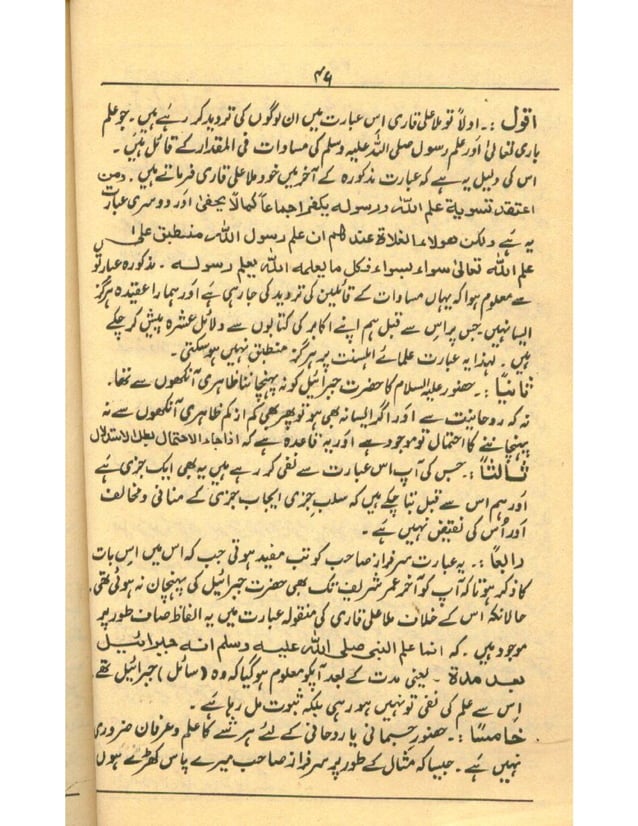 ۴۶
اقول :۔ اولاً تو ملا علی قاری اس عبارت میں ان لوگوں کی تردید کر رہے ہیں۔ جو علم
باری تعالیٰ اور علم رسول صلی اللہ علیہ وسلم کی مساوات فی المقدار کے قائل ہیں۔
اس کی دلیل یہ ہے کہ عبارت مذکورہ کے آخر میں خود ملا علی قاری فرماتے ہیں۔ ومن
اعتقد تسویۃ علم اللہ ورسولہ یکفر اجماعاً کمالا یخفیٰ اور دوسری عبارت
یہ ہے ولکن ھولاء الغلاۃ عندھم ان علم رسول اللہ منطبق علیٰ
علم اللہ تعالیٰ سواء بسواء فکل ما یعلمہ اللہ یعلم رسولہ ۔ مذکورہ عبارتو
سے معلوم ہوا کہ یہاں مساوات کے قائلین کی تردید کی جا رہی ہے اور ہمارا عقیدہ ہرگز
ایسا نہیں۔ جس پر اس سے قبل ہم اپنے اکابر کی کتابوں سے دلائل عشرہ پیش کر چکے
ہیں۔ لہٰذا یہ عبارت علمائے اہلسنت پر ہرگز منطبق نہیں ہو سکتی۔
ثانیاً :۔ حضور علیہ السلام کا حضرت جبرائیل کو نہ پہچاننا ظاہری آنکھوں سے تھا۔
نہ کہ روحانیت سے اور اگر ایسا نہ بھی ہو تو پھر بھی کم از کم ظاہری آنکھوں سے نہ
پہچاننے کا احتمال تو موجود ہے اور یہ قاعدہ ہے کہ اذا جاء الاحتمال بطل الاستدلال
ثالثاً :۔ جس کی آپ اس عبارت سے نفی کر رہے ہیں یہ بھی ایک جزی ہے
اور ہم اس سے قبل بتا چکے ہیں کہ سلب جزی ایجاب جزی کے منافی و مخالف
اور اُس کی نقیض نہیں ہے۔
رابعاً :۔ یہ عبارت سرفراز صاحب کو تب مفید ہوتی جب کہ اس میں اس بات
کا ذکر ہوتا کہ آپ کو آخر عمر شریف تک بھی حضرت جبرائیل کی پہچان نہ ہوئی تھی
حالانکہ اس کے خلاف ملا علی قاری کی منقولہ عبارت میں یہ الفاظ صاف طور پر
موجود ہیں۔ کہ انما علم النبی صلی اللہ علیہ وسلم انہ جبرائیل
بعد مدۃ ۔ یعنی مدت کے بعد آپکو معلوم ہو گیا کہ وہ (سائل) جبرائیل تھے
اس سے علم کی نفی تو نہیں ہو رہی بلکہ ثبوت مل رہا ہے۔
خامساً :۔ حضور جسمانی یا روحانی کے لئے ہر شے کا علم و عرفان ضروری
نہیں ہے۔ جیسا کہ مثال کے طور پر سرفراز صاحب میرے پاس کھڑے ہوں